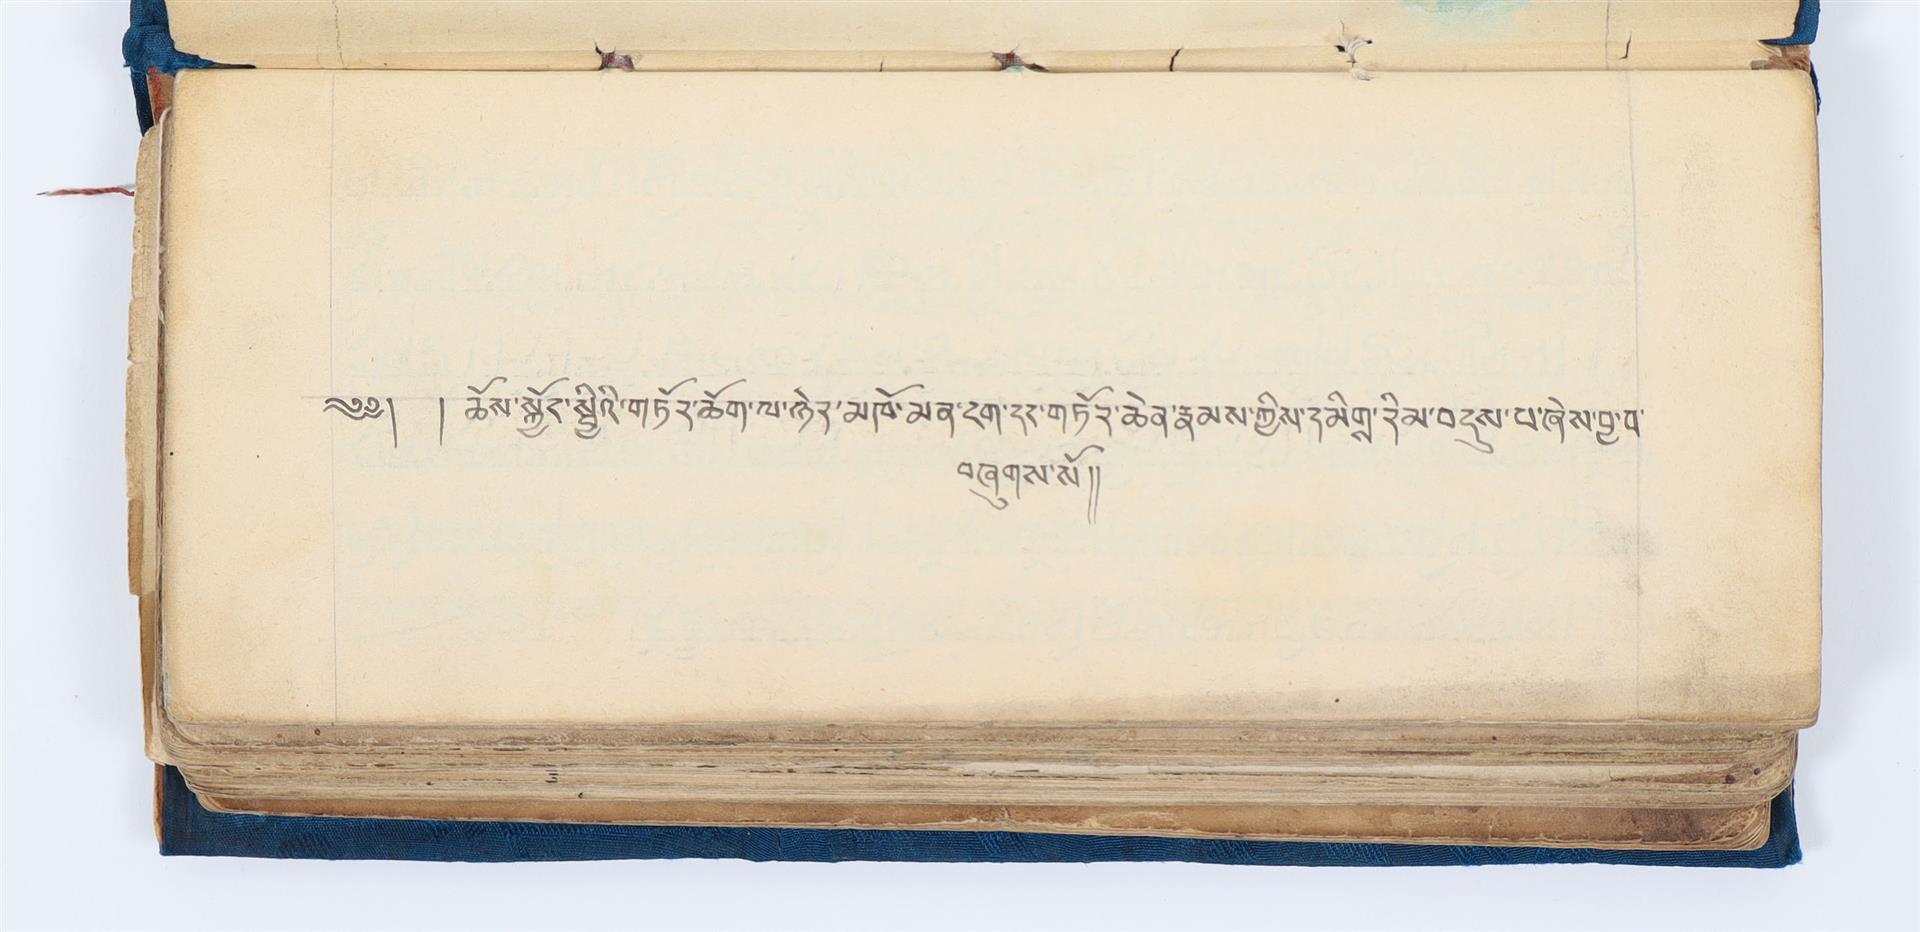 ༄༅། ། ཆོས་སྐྱོང་སྤྱིའི་གཏོར་ཆོག་ལ་ཉེར་མཁོ་མན་ངག་དང་གཏོར་ཆེན་རྣམས་ཀྱིས་དམིགྶ་རིམ་བདུས་པ་ཞེས་བྱ་བ་
བཞུགས་སོ།།